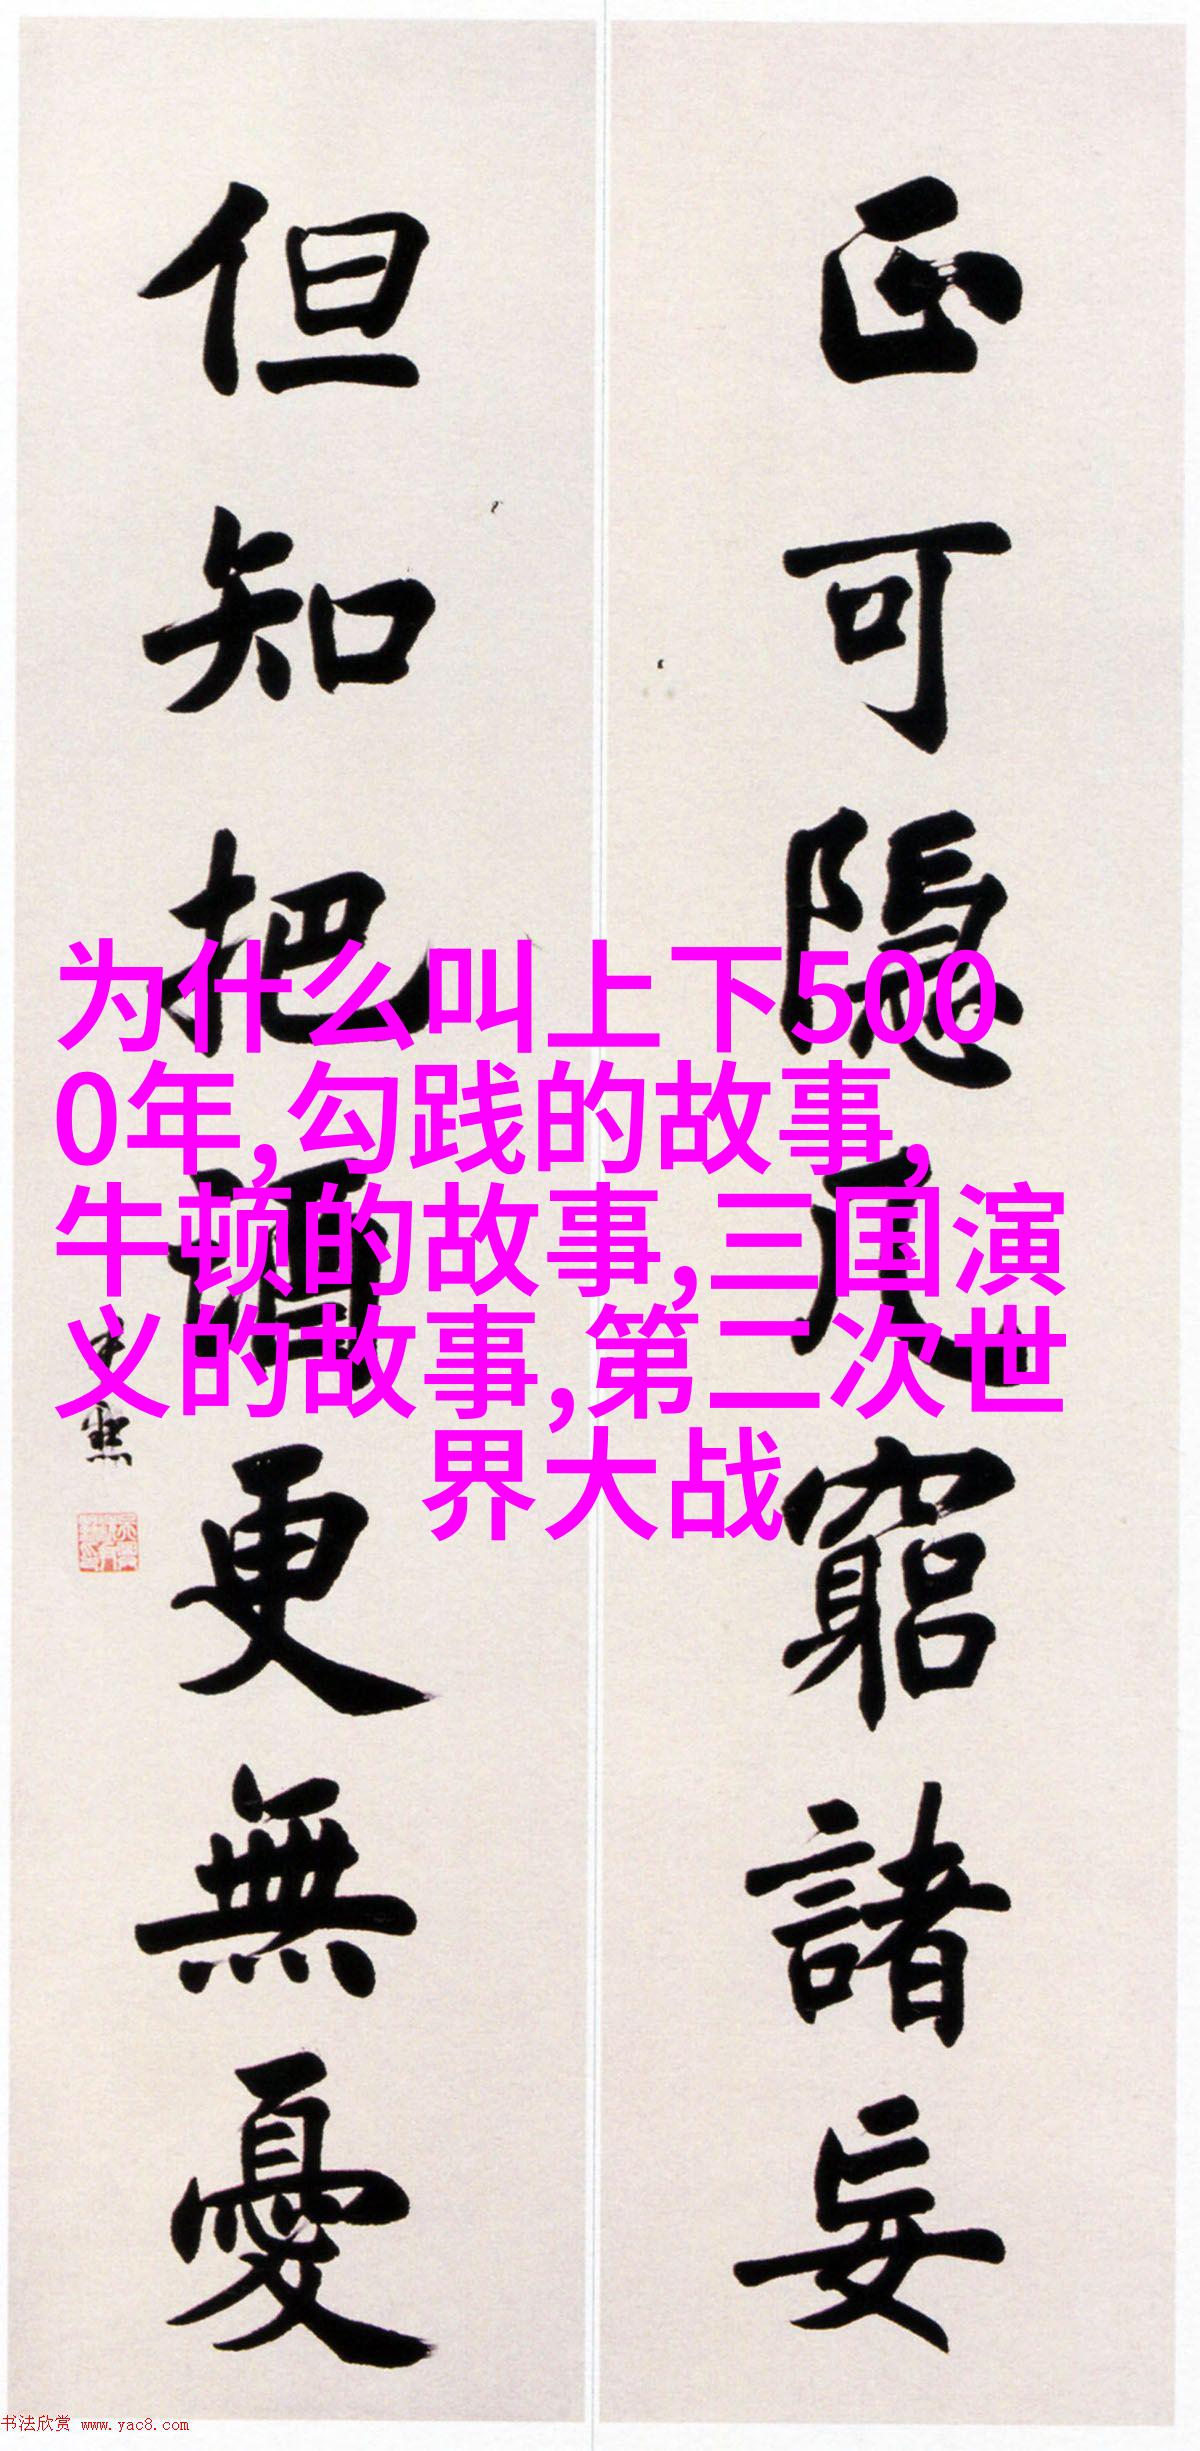 正可隱几窮諸妄
但知把酒更無憂
为什么叫上下500
0年,勾践的故事,
牛顿的故事,三国演
义的故事,第二次世
界大战
书法欣赏 www.yac8.com